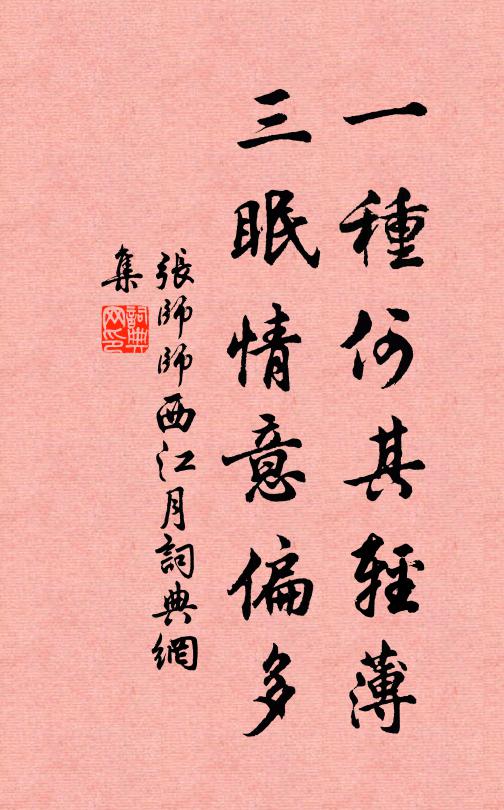 一種何其輕薄
三眠情意偏多
張師師西江月詞典網
集
詞典
网印